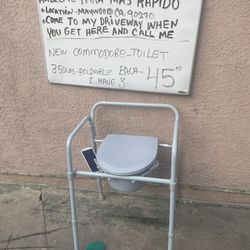 PARA MAS RAPIDO
• LOCATION - MAYWOOD CA 90270
• COME TO MY DRIVEWAY WHEN
YOU GET HERE AND CALL ME
NEW COMMODORE-TOILET
350LBS-FOLDABLE EACH- 45
I HAVE 3